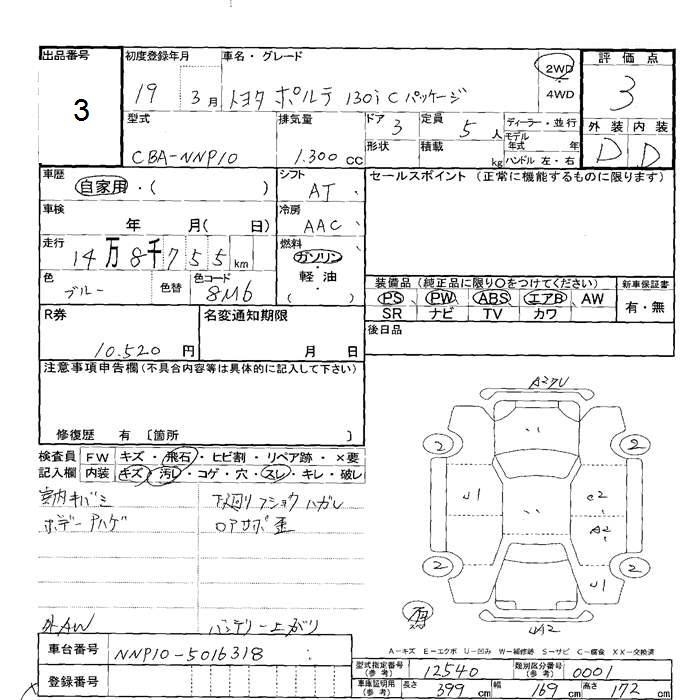 出品番号 初度登録年月 車名・グレード 評価点
3 19 3月 トヨタ ポルテ 130i Cパッケージ 2WD 3
4WD
型式 排気量 ドア 3 定員 5人 ディーラー・並行 外装 内装
モデル年式 年
CBA-NNP10 1.300cc 形状 積載 kg ハンドル 左・右 D D
車歴 シフト セールスポイント (正常に機能するものに限ります)
自家用・( ) AT
車検 冷房
年 月( 日) AAC
走行 燃料
14万8千755km ガソリン
色 色替 色コード ・軽油 装備品(純正品に限り○をつけてください) 新車保証書
ブルー 8M6 ( ) PS PW ABS エアB AW 有・無
SR ナビ TV カワ
R券 名変通知期限 後日品
10.520円 月 日
注意事項申告欄(不具合内容等は具体的に記入して下さい)
修復歴 有 〔箇所 〕
検査員 FW キズ・飛石・ヒビ割・リペア跡・×要
記入欄 内装 キズ・汚レ・コゲ・穴・スレ・キレ・破レ
室内キバミ 下廻リ フショウ ハガレ
ボデー アハゲ ロアサポ歪
外AW バッテリー上がり
2 2
U1 e2
A2
2 2
U1
UA2
A-キズ E-エクボ U-凹み W-補修跡 S-サビ C-腐食 XX-交換済
車台番号 NNP10-5016318
登録番号
型式指定番号(参考) 12540 類別区分番号(参考) 0001
車庫証明用(参考) 長さ 399cm 幅 169cm 高さ 172cm